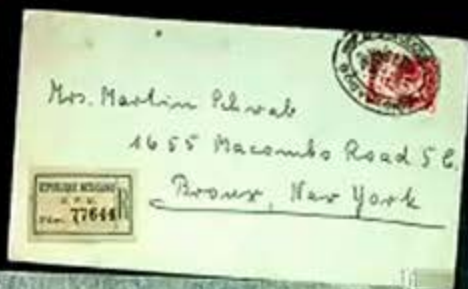 Mrs. Martin Schwab
1655 Macombs Road 5 C.
Bronx, New York
REPUBLIQUE MEXICAINE
R
Núm. 77644